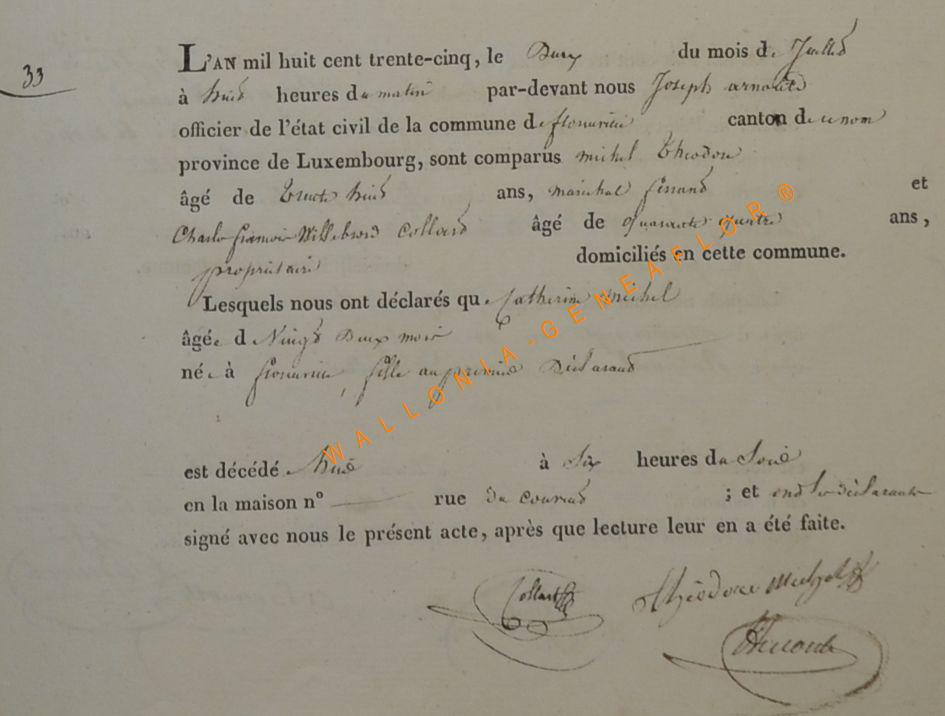 33
L'AN mil huit cent trente-cinq, le Deux du mois de Juillet
à huit heures du matin par-devant nous Joseph arnould
officier de l'état civil de la commune de florenville canton de ce nom
province de Luxembourg, sont comparus michel théodore
âgé de trente huit ans, maréchal ferrand et
Charle françois Willebrord Collard âgé de quarante quatre ans,
propriétaire domiciliés en cette commune.
Lesquels nous ont déclarés que Catherine michel
âgée de Vingt Deux mois
née à florenville, fille au premier Déclarant
est décédée à Six heures du Soir
en la maison n° rue ; et ont les déclarants
signé avec nous le présent acte, après que lecture leur en a été faite.
Collard Théodore Michel
Arnould
WALLONIA-GENEAFLOR®